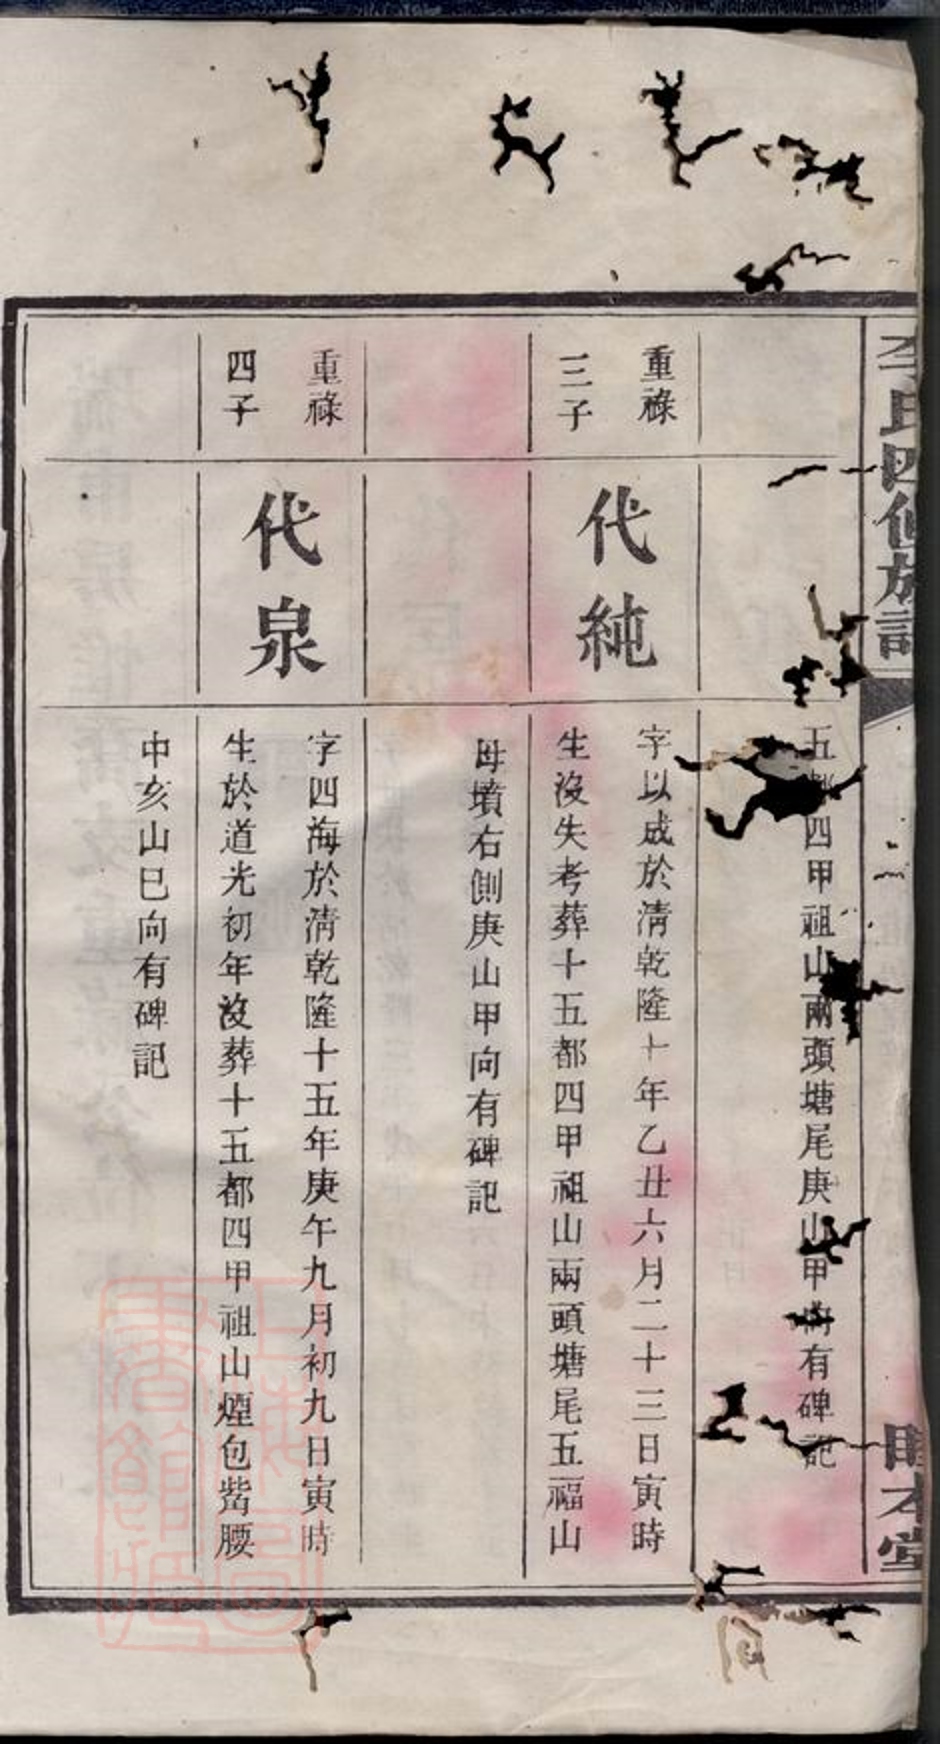 李氏四修族譜
睦本堂
五都四甲祖山兩頭塘尾庚山甲向有碑記
重祿
三子
代純
字以成於清乾隆十年乙丑六月二十三日寅時
生沒失考葬十五都四甲祖山兩頭塘尾五福山
母墳右側庚山甲向有碑記
重祿
四子
代泉
字四海於清乾隆十五年庚午九月初九日寅時
生於道光初年沒葬十五都四甲祖山煙包觜腰
中亥山巳向有碑記
上海圖書館藏